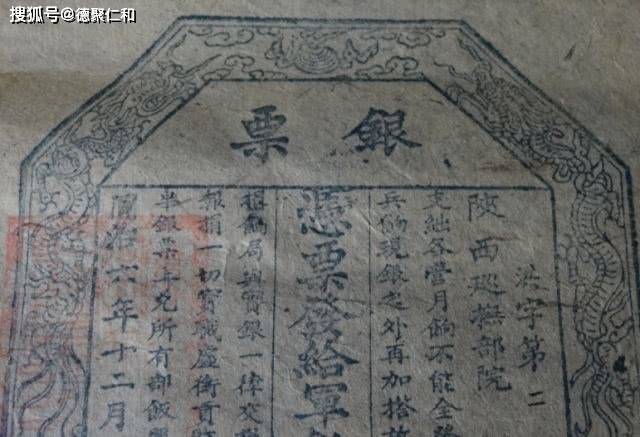 搜狐号@德聚仁和
銀票
洪字第二
陝西巡撫部院
支絀各營月餉不能全
兵餉現銀之外再加搭
憑票發給軍
捐餉局與實銀一律交
報捐一切實職虛銜貢
半銀票上兌所有部飯
同治六年十二月